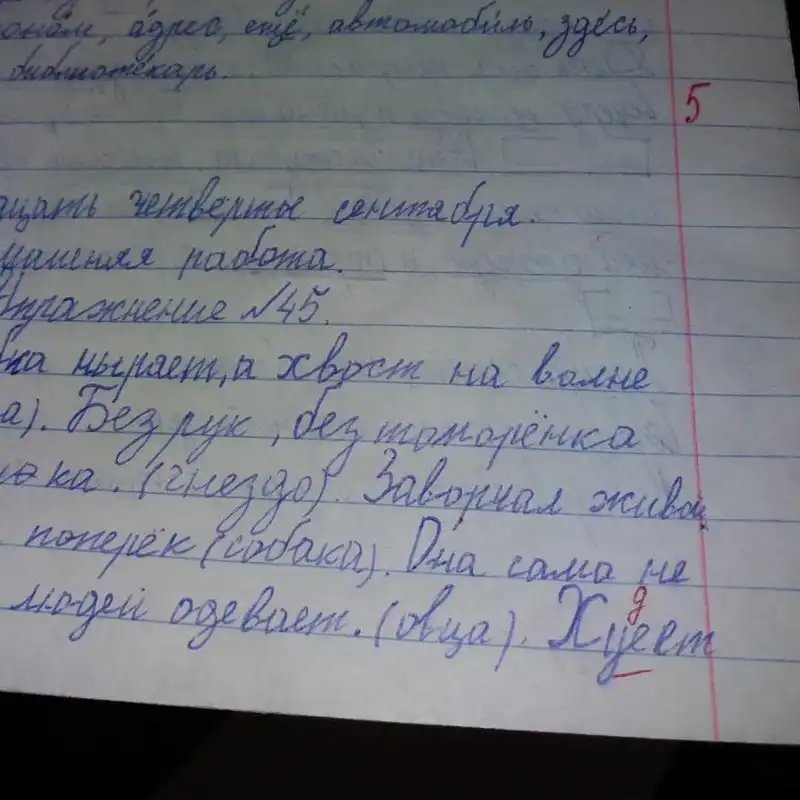 оном, адрес, ещё, автомобиль, здесь,
библиотекарь.
5
ацать четвертое сентября.
машняя работа.
Упражнение №45.
ка ныряет, а хвост на волне
а). Без рук, без топорёнка
ка. (гнездо). Заворчал живой
поперёк (собака). Она сама не
людей одевает. (овца). Хуеет
д